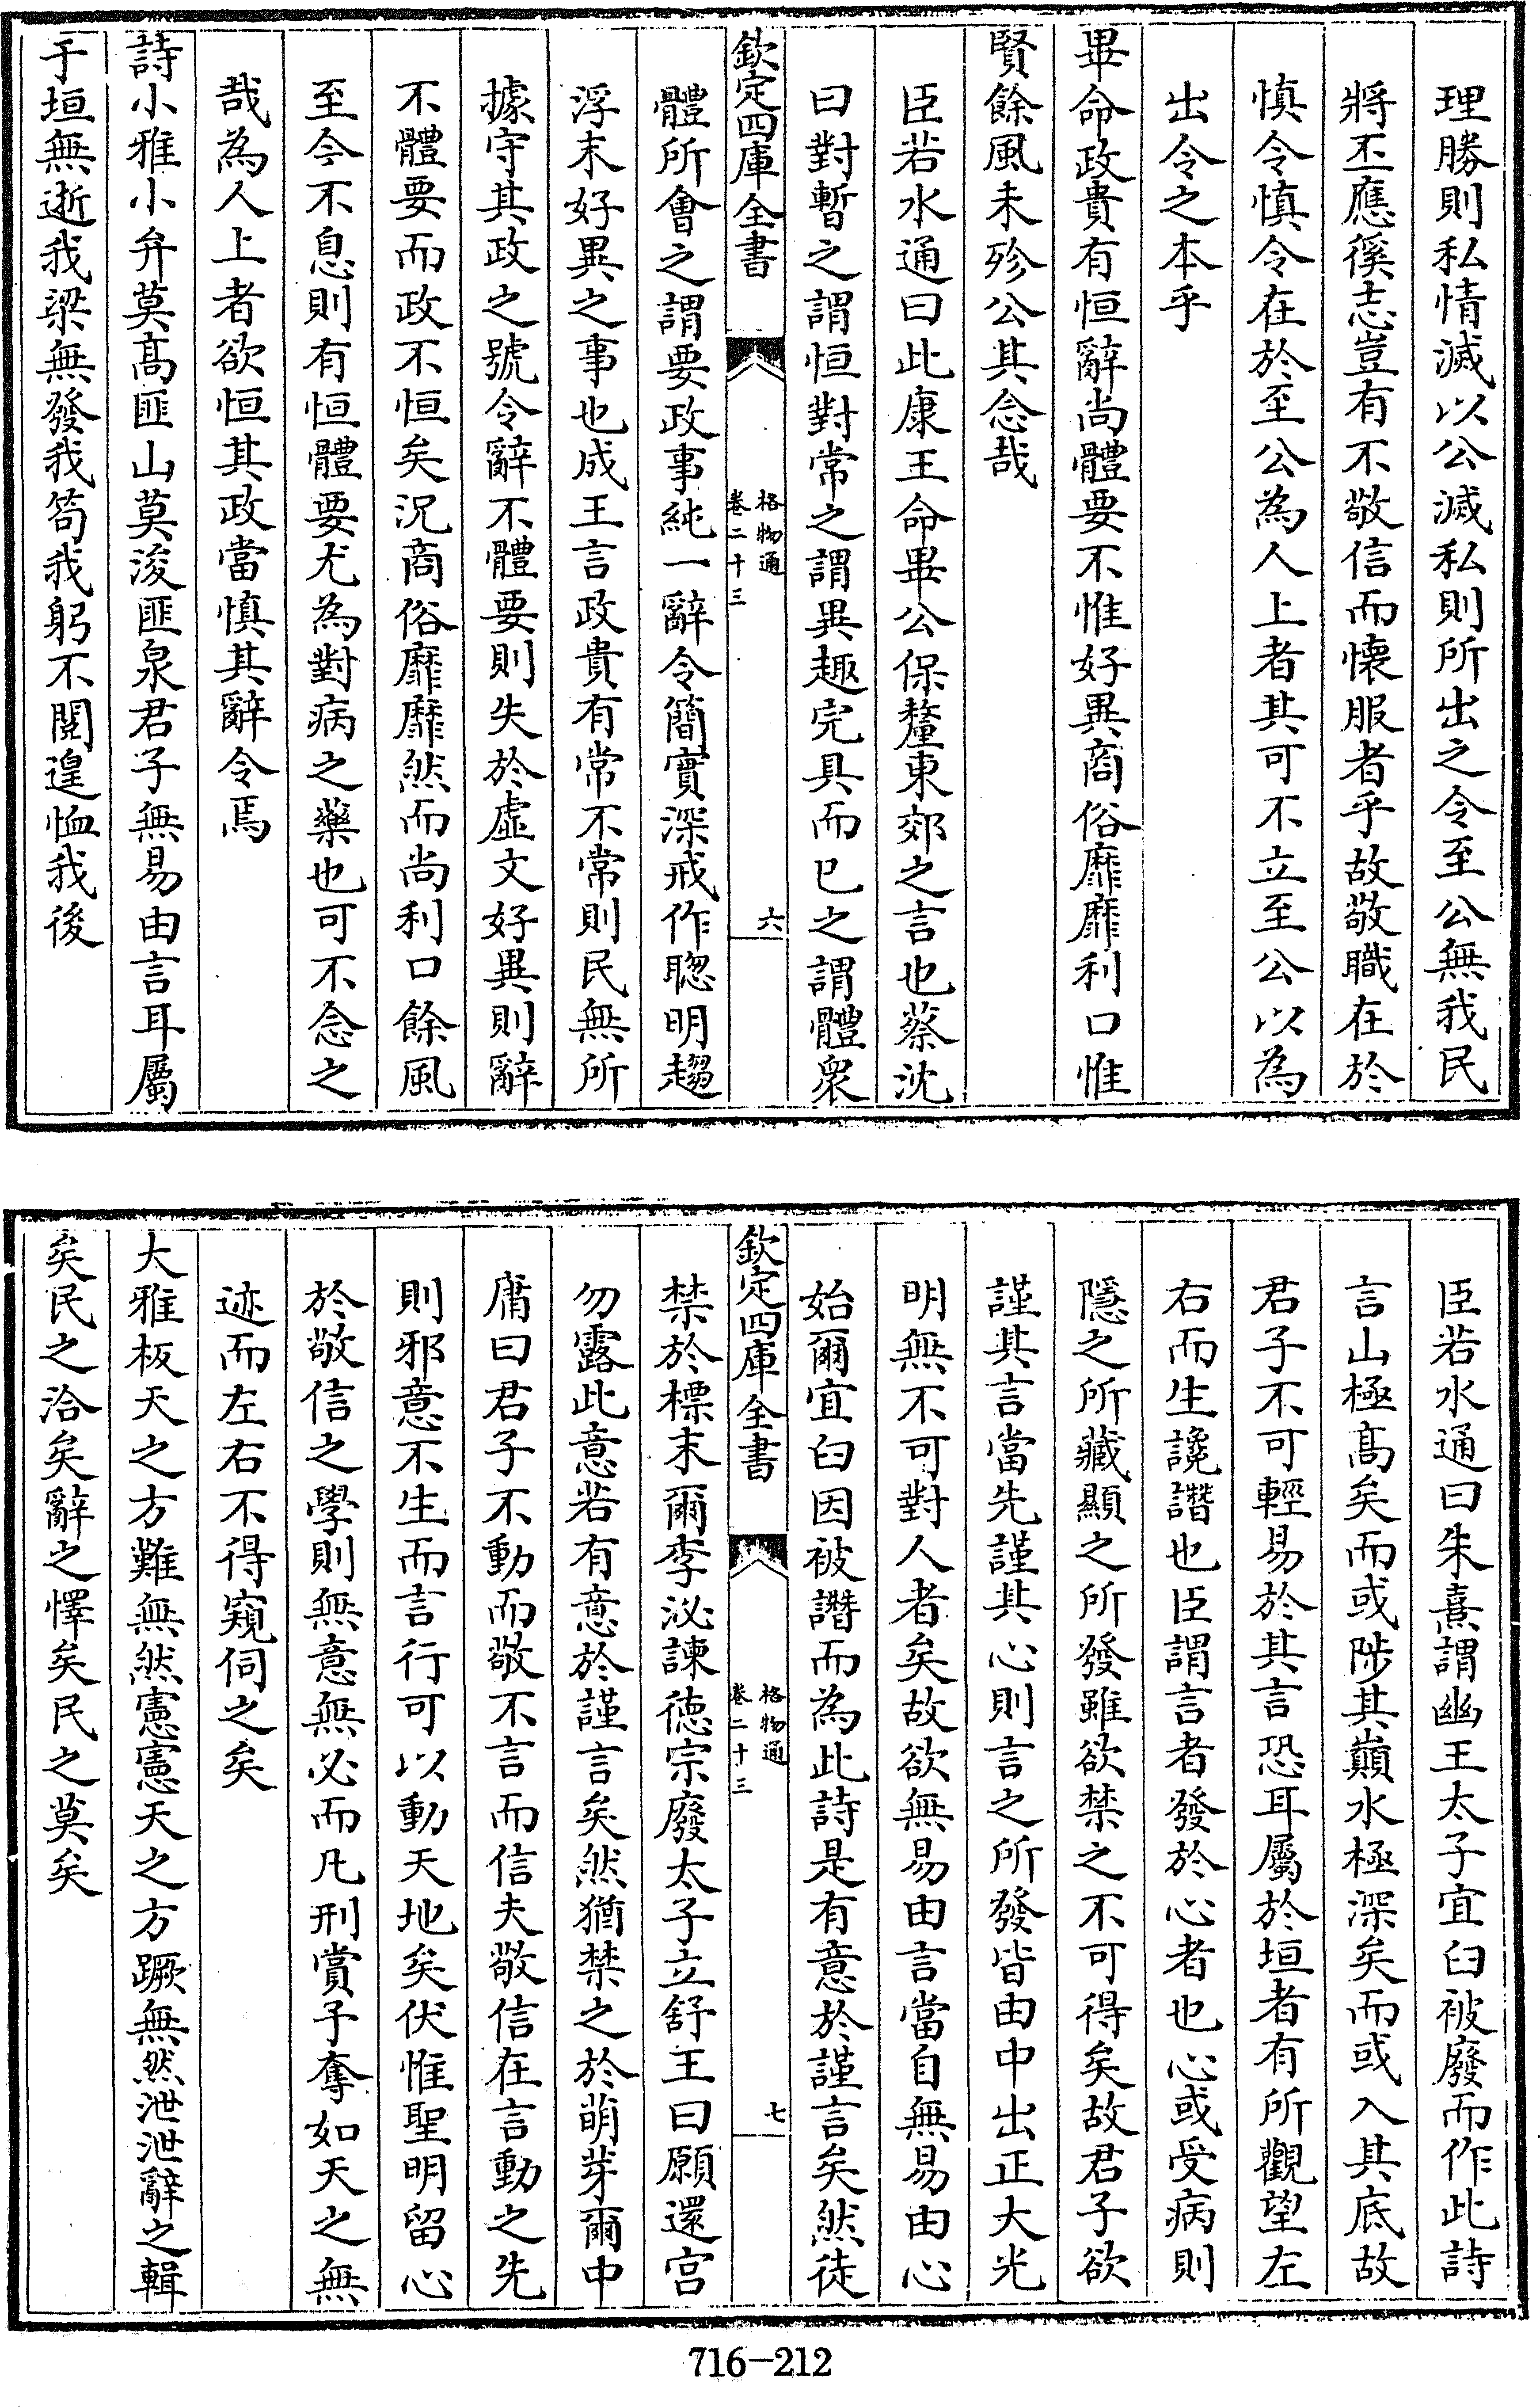 理勝則私情滅以公滅私則所出之令至公無我民
將丕應徯志豈有不敬信而懷服者乎故敬職在於
慎令慎令在於至公為人上者其可不立至公以為
出令之本乎
畢命政貴有恒辭尚體要不惟好異商俗靡靡利口惟
賢餘風未殄公其念哉
臣若水通曰此康王命畢公保釐東郊之言也蔡沈
曰對暫之謂恒對常之謂異趣完具而已之謂體衆
欽定四庫全書
格物通
卷二十三
六
體所會之謂要政事純一辭令簡實深戒作聰明趨
浮末好異之事也成王言政貴有常不常則民無所
據守其政之號令辭不體要則失於虛文好異則辭
不體要而政不恒矣況商俗靡靡然而尚利口餘風
至今不息則有恒體要尤為對病之藥也可不念之
哉為人上者欲恒其政當慎其辭令焉
詩小雅小弁莫髙匪山莫浚匪泉君子無易由言耳屬
于垣無逝我梁無發我笱我躬不閱遑恤我後
臣若水通曰朱熹謂幽王太子宜臼被廢而作此詩
言山極髙矣而或陟其巔水極深矣而或入其底故
君子不可輕易於其言恐耳屬於垣者有所觀望左
右而生讒譖也臣謂言者發於心者也心或受病則
隱之所藏顯之所發雖欲禁之不可得矣故君子欲
謹其言當先謹其心則言之所發皆由中出正大光
明無不可對人者矣故欲無易由言當自無易由心
始爾宜臼因被譖而為此詩是有意於謹言矣然徒
欽定四庫全書
格物通
卷二十三
七
禁於標末爾李泌諫德宗廢太子立舒王曰願還宫
勿露此意若有意於謹言矣然猶禁之於萌芽爾中
庸曰君子不動而敬不言而信夫敬信在言動之先
則邪意不生而言行可以動天地矣伏惟聖明留心
於敬信之學則無意無必而凡刑賞予奪如天之無
迹而左右不得窺伺之矣
大雅板天之方難無然憲憲天之方蹶無然泄泄辭之輯
矣民之洽矣辭之懌矣民之莫矣
716-212